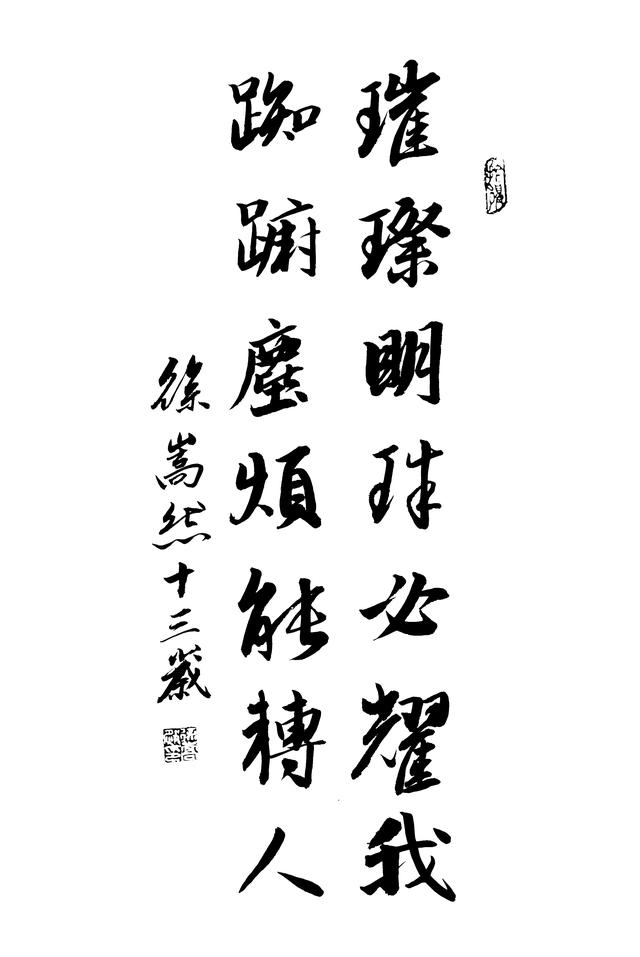 璀璨明珠必耀我
踟躕塵煩能轉人
徐嵩然十三歲